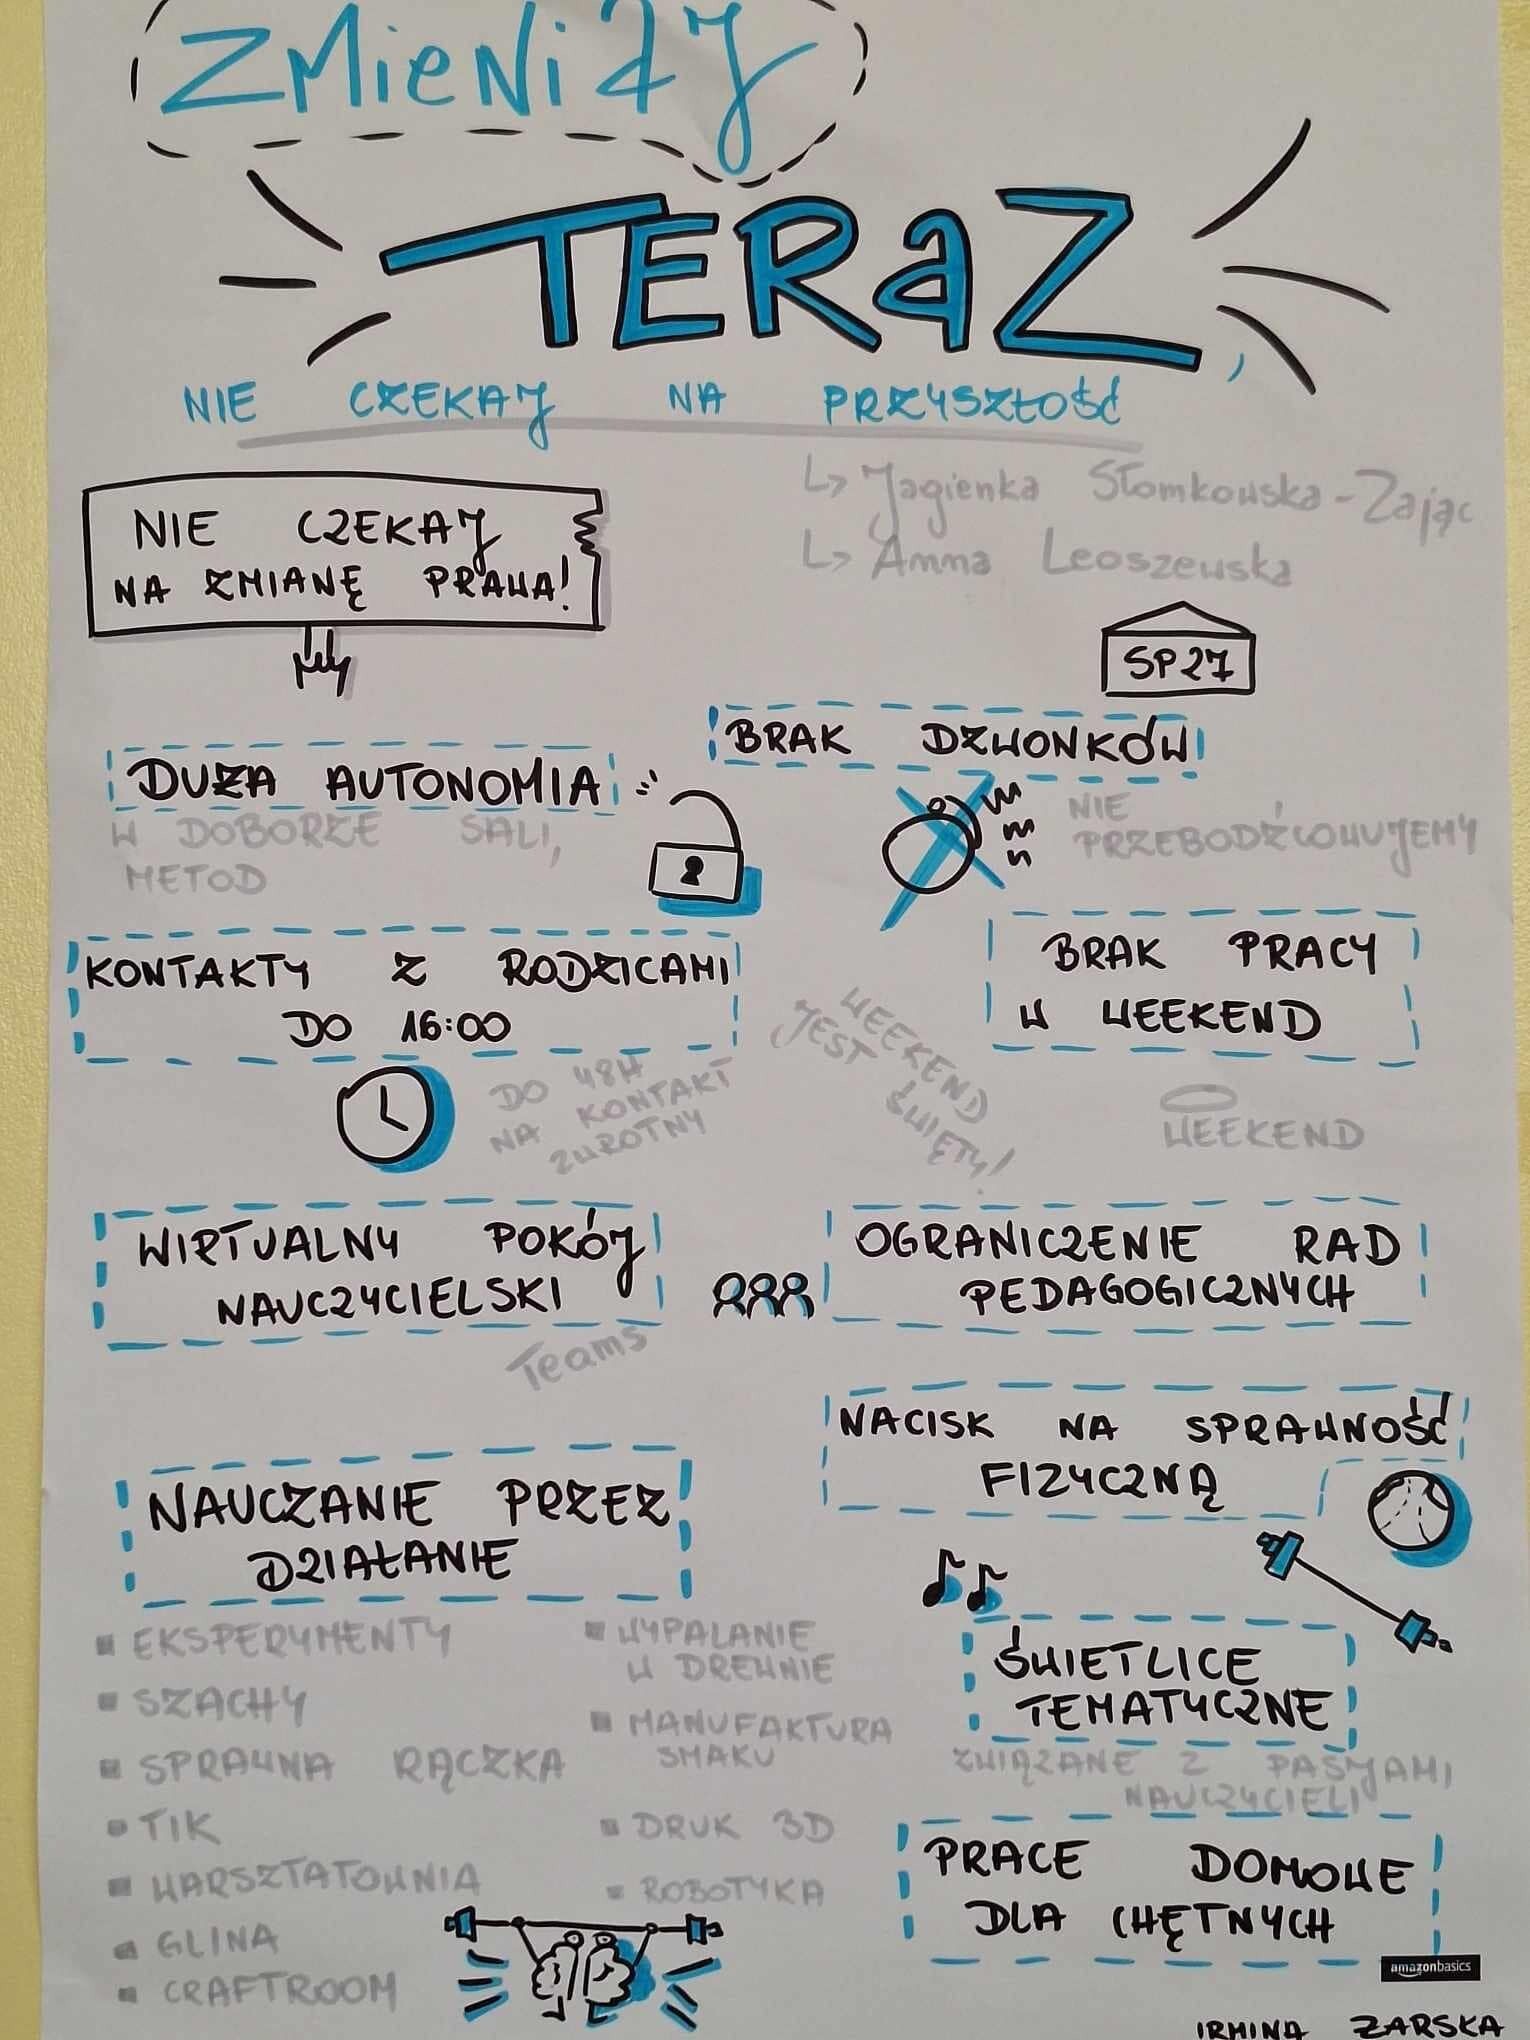 ZMieNiAJ
TERaZ,
NIE CZEKAJ NA PRZYSZŁOŚĆ
↳ Jagienka Słomkowska-Zając
↳ Anna Leoszewska
NIE CZEKAJ
NA ZMIANĘ PRAWA!
SP27
BRAK DZWONKÓW
NIE
PRZEBODŹCOWUJEMY
DUŻA AUTONOMIA
W DOBORZE SALI,
METOD
KONTAKTY Z RODZICAMI
DO 16:00
DO 48H
NA KONTAKT
ZWROTNY
BRAK PRACY
W WEEKEND
WEEKEND
JEST ŚWIĘTY!
WEEKEND
WIRTUALNY POKÓJ
NAUCZYCIELSKI
Teams
OGRANICZENIE RAD
PEDAGOGICZNYCH
NACISK NA SPRAWNOŚĆ
FIZYCZNĄ
NAUCZANIE PRZEZ
DZIAŁANIE
▪ EKSPERYMENTY
▪ SZACHY
▪ SPRAWNA RĄCZKA
▪ TIK
▪ WARSZTATOWNIA
▪ GLINA
▪ CRAFTROOM
▪ WYPALANIE
W DREWNIE
▪ MANUFAKTURA
SMAKU
▪ DRUK 3D
▪ ROBOTYKA
ŚWIETLICE
TEMATYCZNE
ZWIĄZANE Z PASJAMI
NAUCZYCIELI
PRACE DOMOWE
DLA CHĘTNYCH
amazonbasics
IRMINA ŻARSKA